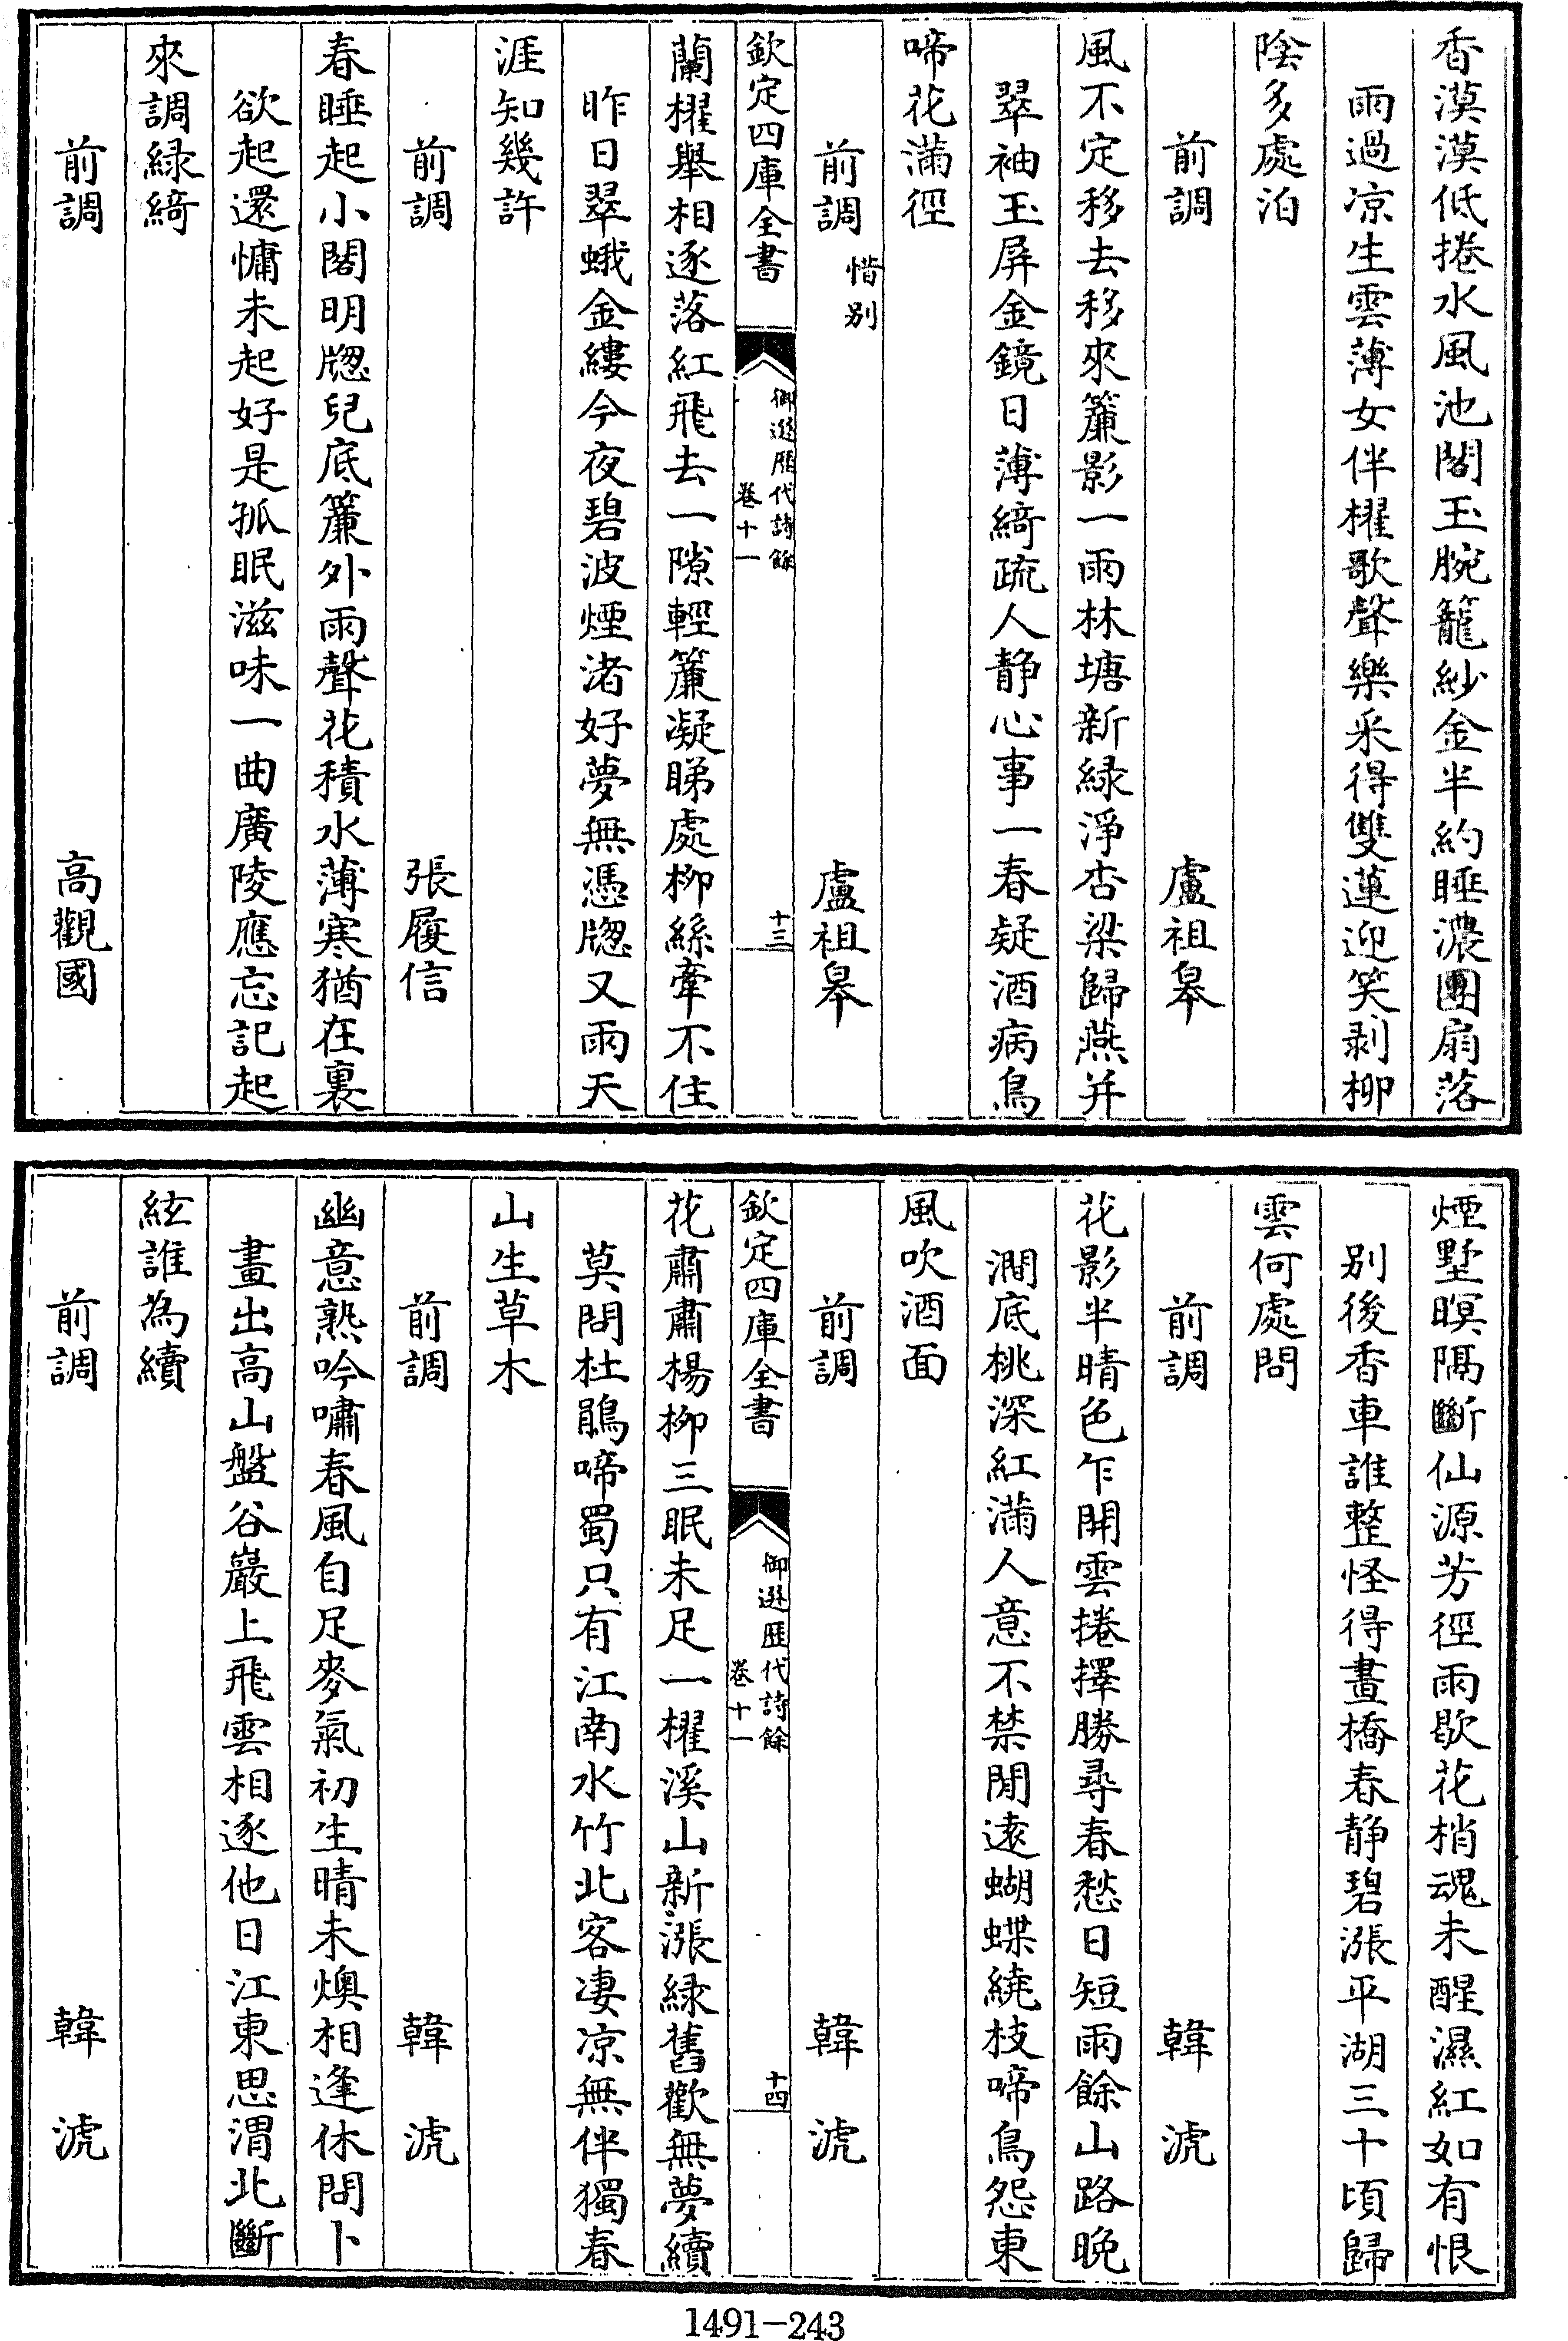 香漠漠低捲水風池閣玉腕籠紗金半約睡濃團扇落
雨過凉生雲薄女伴櫂歌聲樂采得雙蓮迎笑剥柳
陰多處泊
前調　盧祖皋
風不定移去移來簾影一雨林塘新緑淨杏梁歸燕并
翠袖玉屏金鏡日薄綺疏人静心事一春疑酒病鳥
啼花滿徑
前調　惜别　盧祖皋
欽定四庫全書　御選歷代詩餘　卷十一　十三
蘭櫂舉相逐落紅飛去一隙輕簾凝睇處柳絲牽不住
昨日翠蛾金縷今夜碧波煙渚好夢無憑牎又雨天
涯知幾許
前調　張履信
春睡起小閣明牎兒底簾外雨聲花積水薄寒猶在裏
欲起還慵未起好是孤眠滋味一曲廣陵應忘記起
來調緑綺
前調　高觀國
煙墅暝隔斷仙源芳徑雨歇花梢魂未醒濕紅如有恨
别後香車誰整怪得畫橋春静碧漲平湖三十頃歸
雲何處問
前調　韓淲
花影半晴色乍開雲捲擇勝尋春愁日短雨餘山路晚
澗底桃深紅滿人意不禁閒遠蝴蝶繞枝啼鳥怨東
風吹酒面
前調　韓淲
欽定四庫全書　御選歷代詩餘　卷十一　十四
花肅肅楊柳三眠未足一櫂溪山新漲緑舊歡無夢續
莫問杜鵑啼蜀只有江南水竹北客凄凉無伴獨春
山生草木
前調　韓淲
幽意熟吟嘯春風自足麥氣初生晴未燠相逢休問卜
畫出高山盤谷巖上飛雲相逐他日江東思渭北斷
絃誰為續
前調　韓淲
1491-243